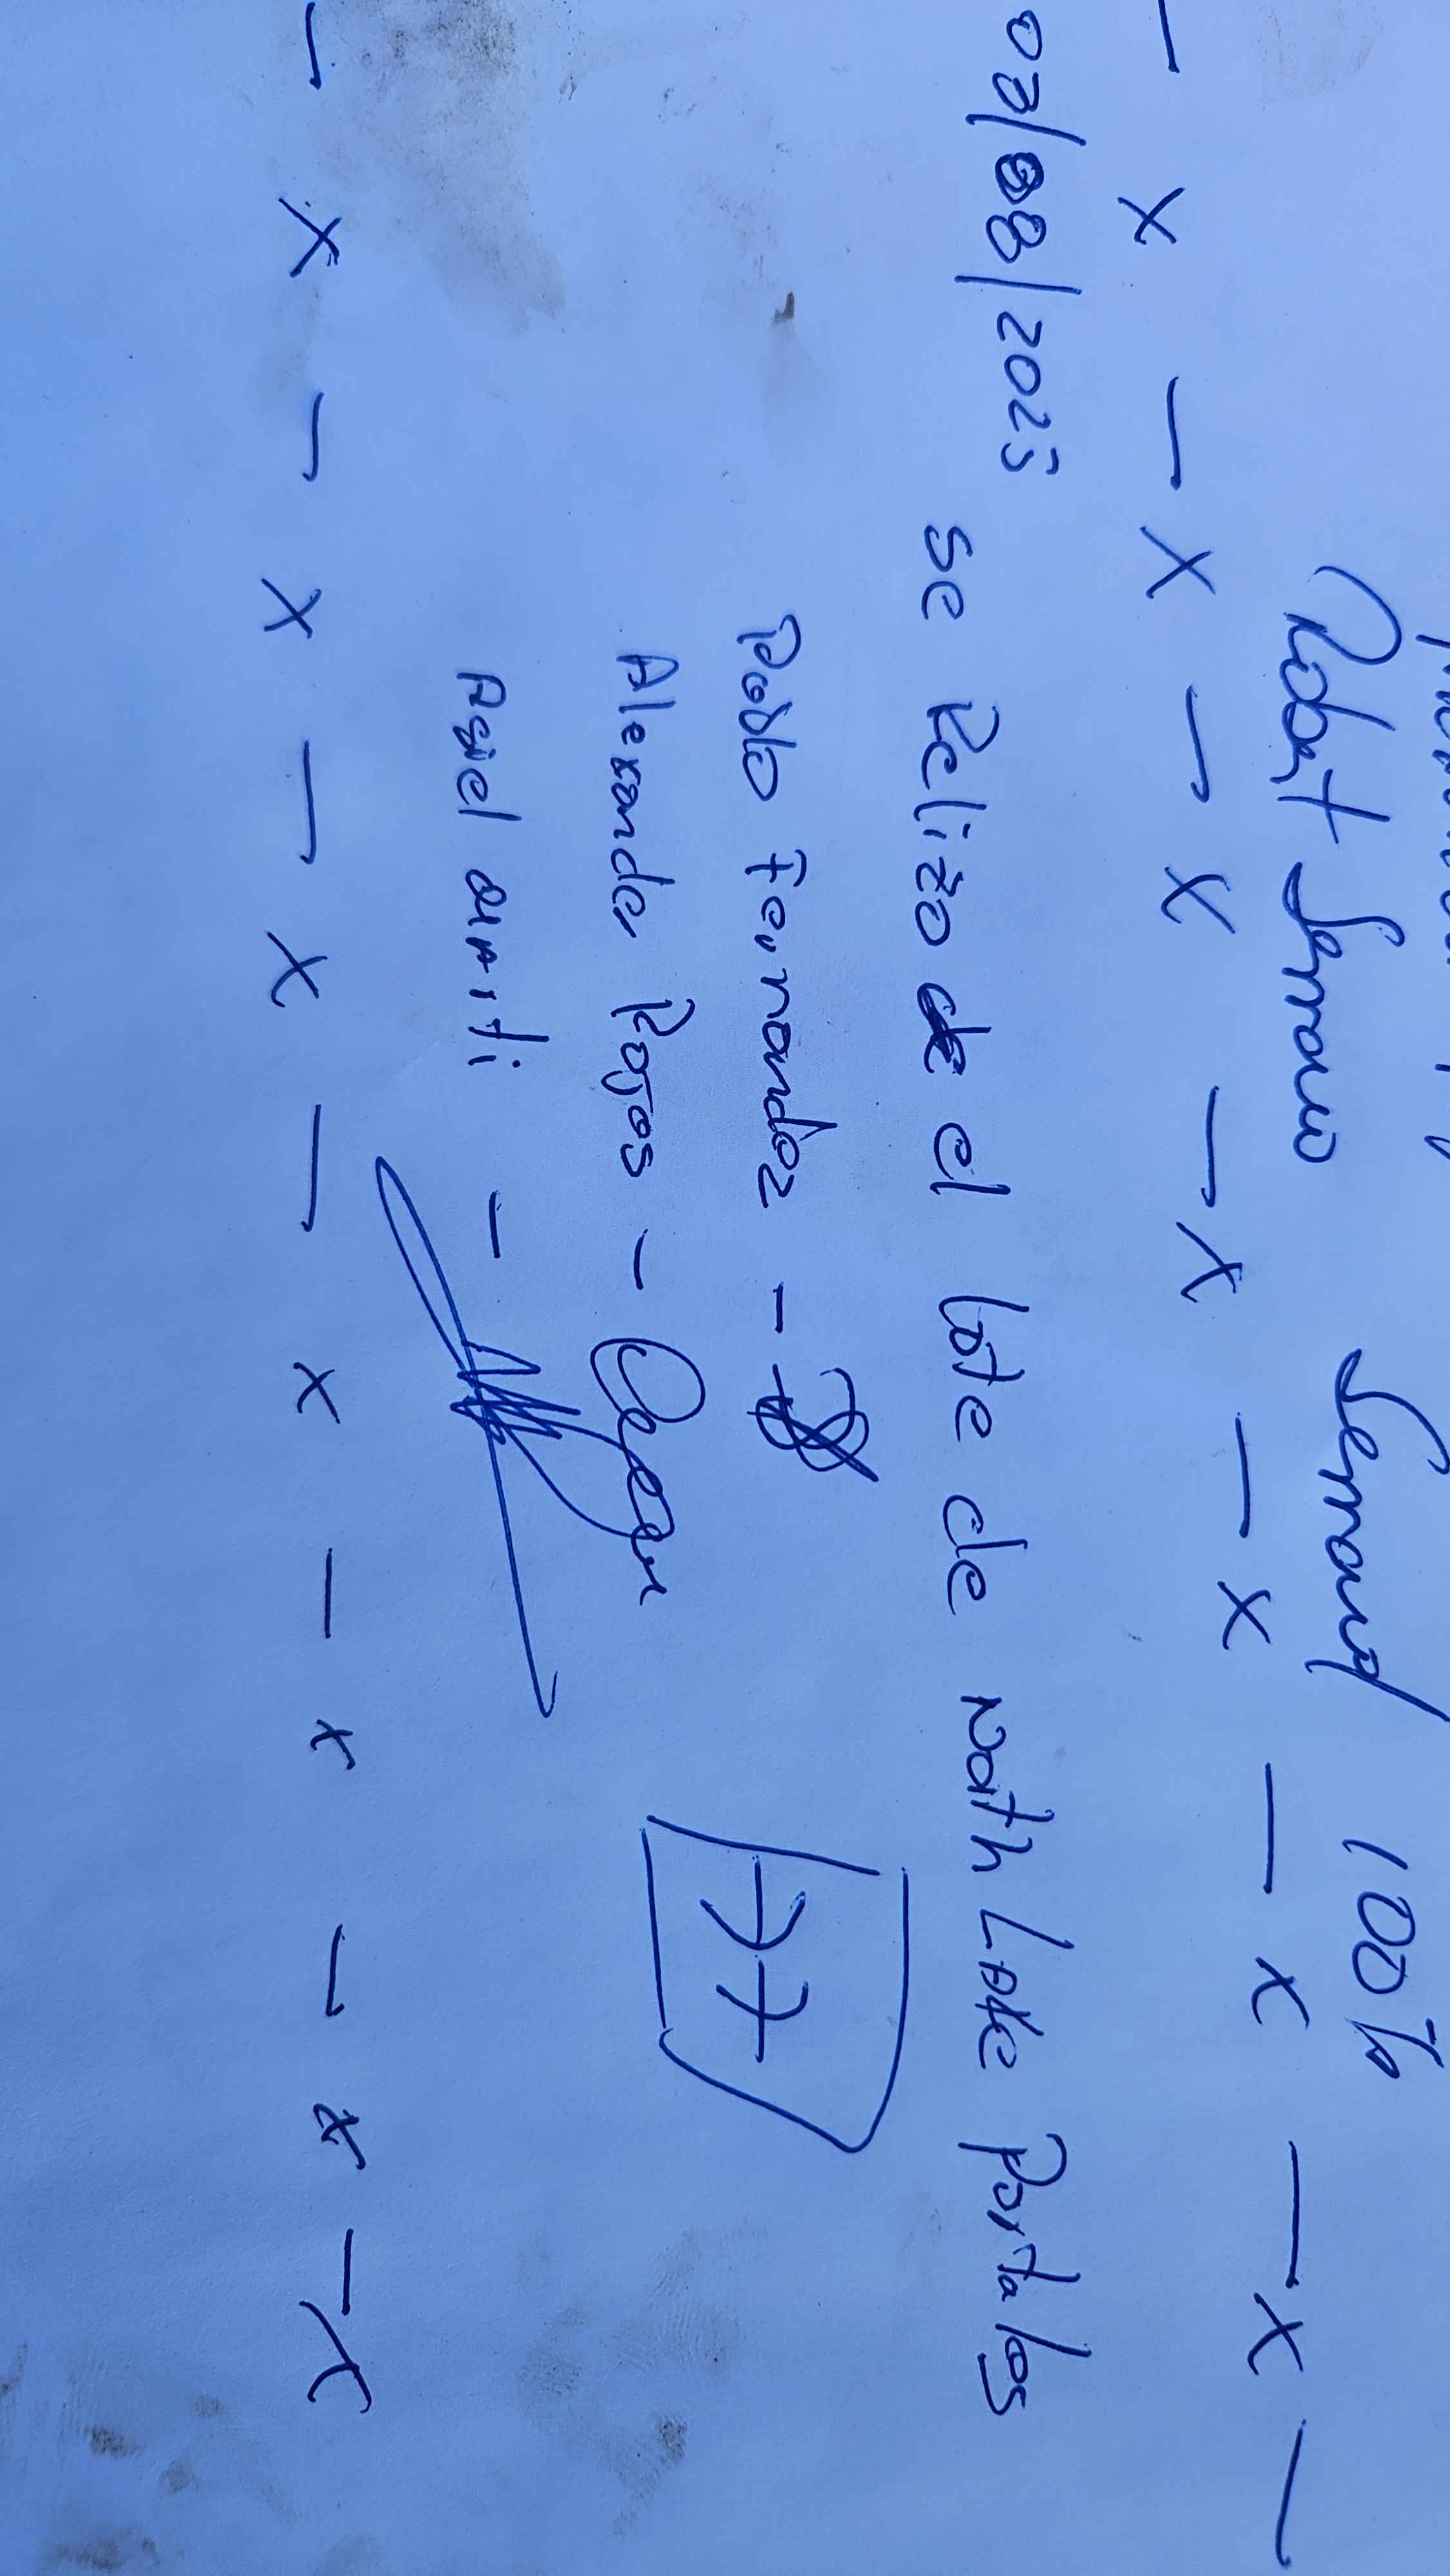 Robert Serrano Serrano 100%
— x — x — x — x — x — x — x —
03/08/2025 se Relizo de el lote de North Lake Portalos
Pablo Fernandez -
Alexander Rojos -
Asiel Marti -
77
— x — x — x — x — x — x — x